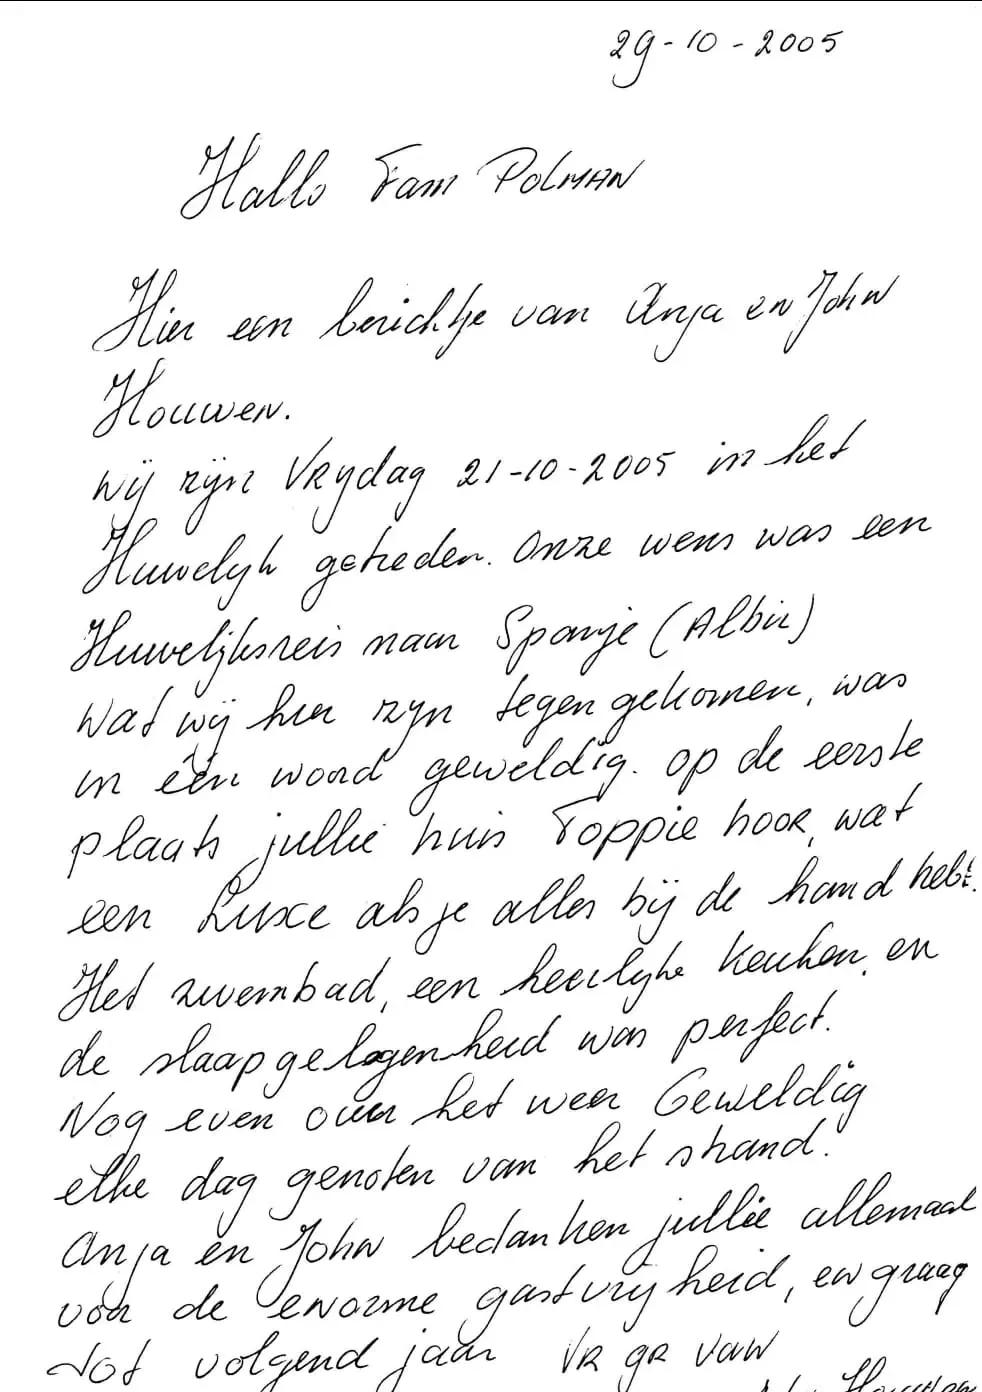 29-10-2005
Hallo Fam Polman
Hier een berichtje van Anja en John
Houwen.
Wij zijn Vrydag 21-10-2005 in het
Huwelyk getreden. Onze wens was een
Huwelijksreis naar Spanje (Albir)
Wat wij hier zyn tegen gekomen, was
in één woord geweldig. op de eerste
plaats jullie huis Toppie hoor, wat
een Luxe als je alles bij de hand hebt.
Het zwembad, een heerlyke keuken, en
de slaapgelegenheid was perfect.
Nog even over het weer Geweldig
elke dag genoten van het strand.
Anja en John bedanken jullie allemaal
voor de enorme gastvryheid, en graag
tot volgend jaar VR GR van
Houwen